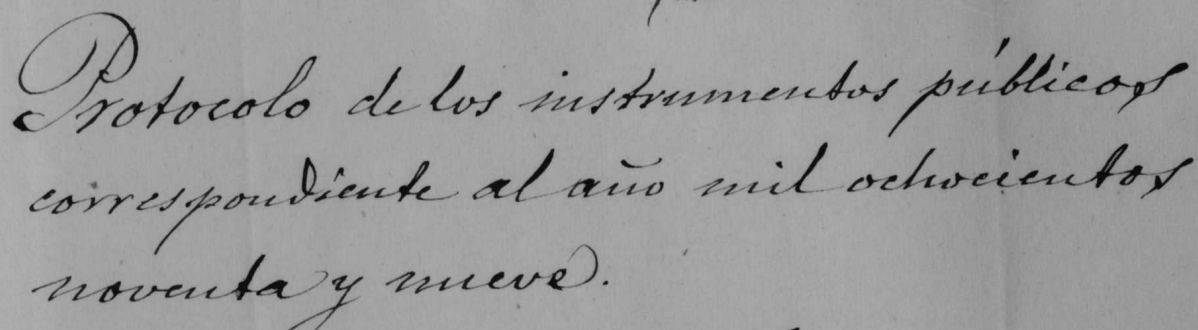 Protocolo de los instrumentos públicos
correspondiente al año mil ochocientos
noventa y nueve.